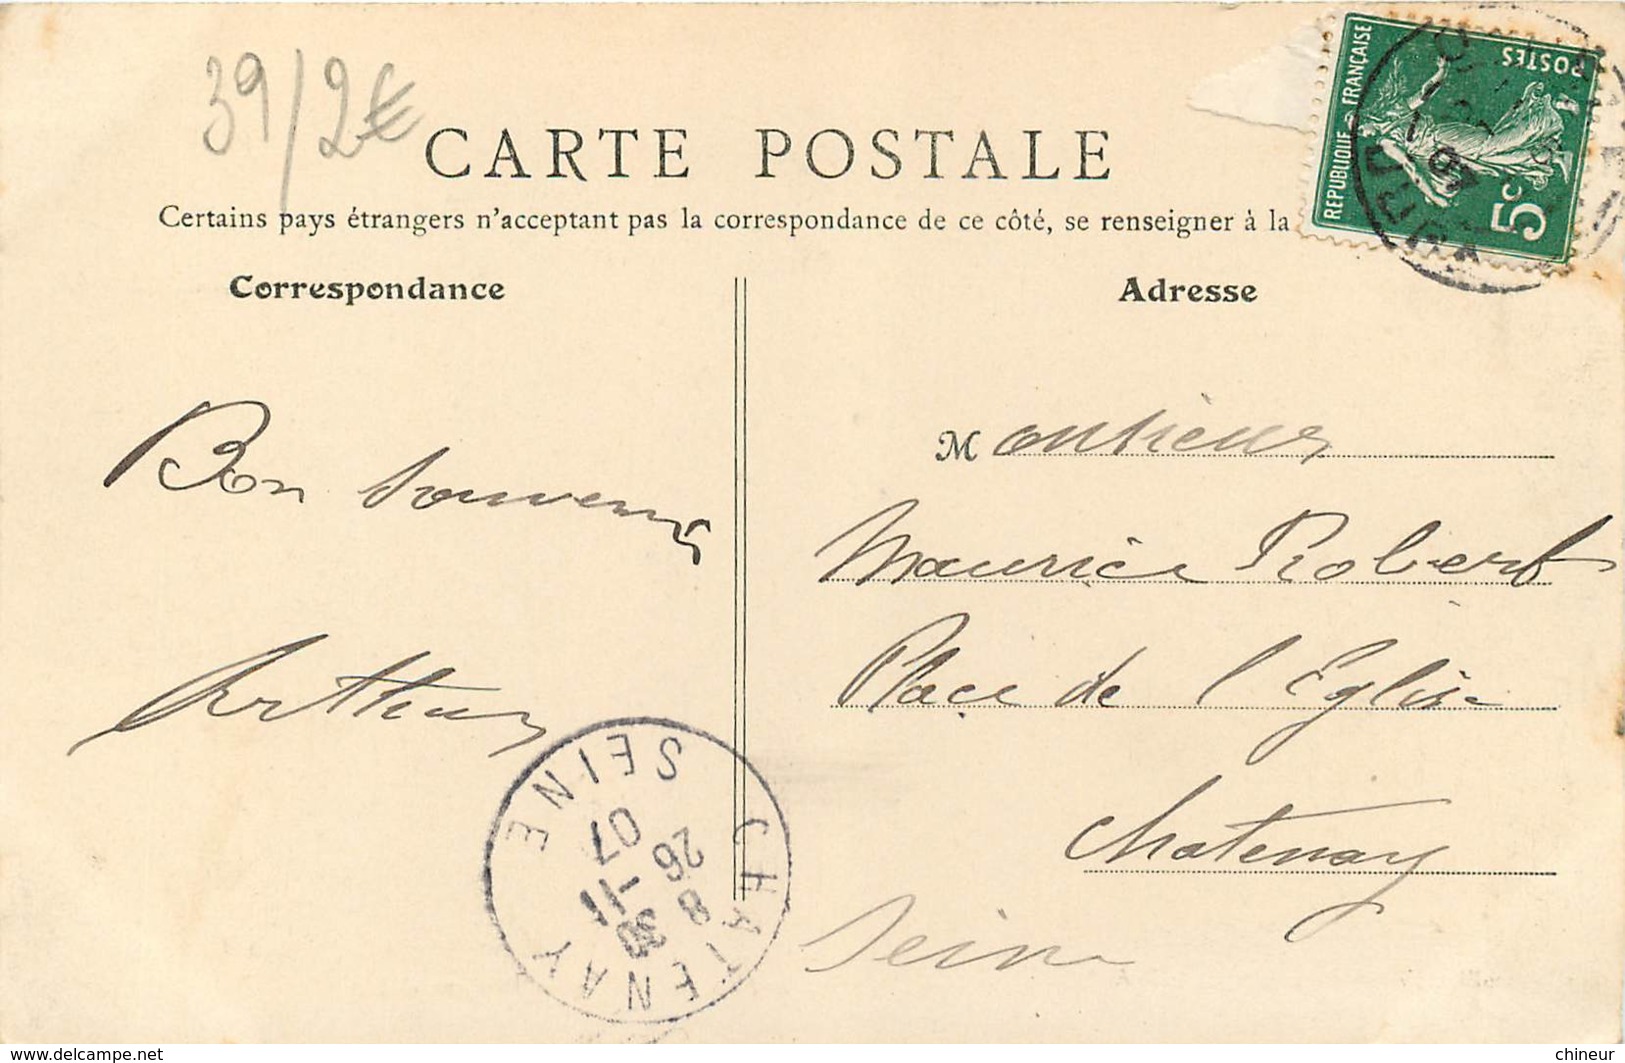 39/2€
CARTE POSTALE
Certains pays étrangers n'acceptant pas la correspondance de ce côté, se renseigner à la
REPUBLIQUE FRANÇAISE
POSTES
5c
Correspondance
Adresse
Bon Souvenir
Arthur
Monsieur
Maurice Robert
Place de l'Eglise
Chatenay
Seine
CHATENAY SEINE
8 30
26 -11
07
www.delcampe.net
chineur